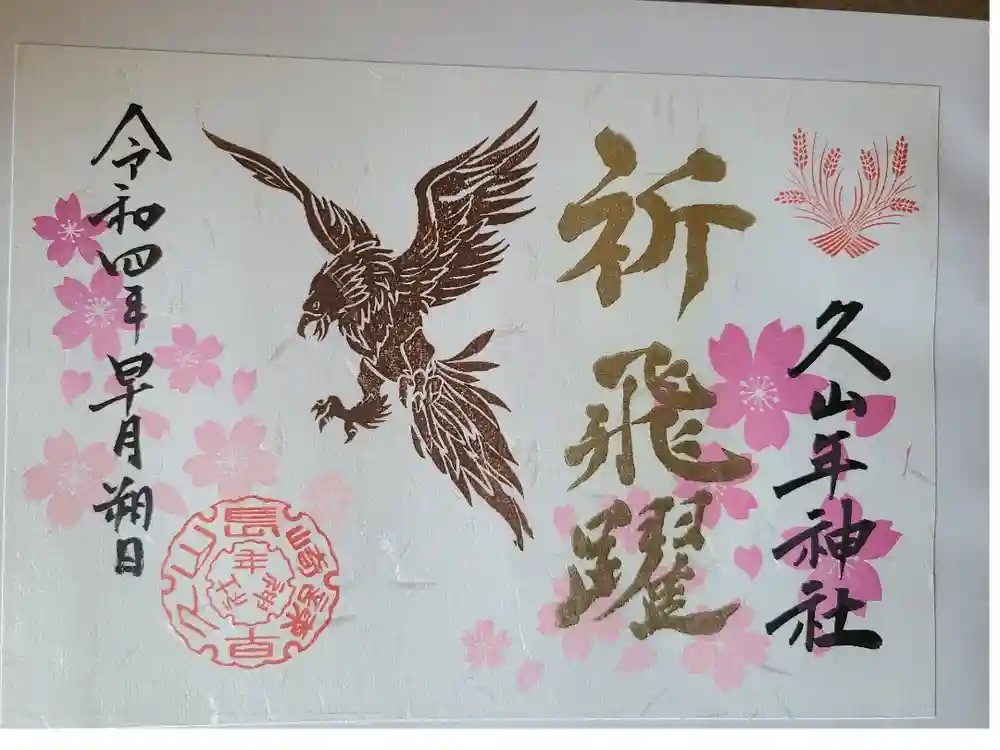 久山年神社
祈飛躍
令和四年早月朔日
久山年神社